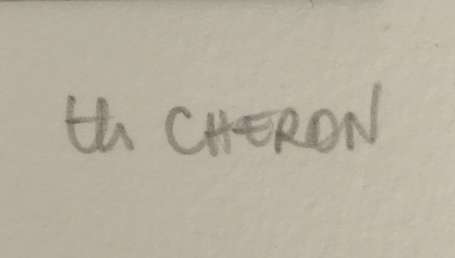 th CHERON